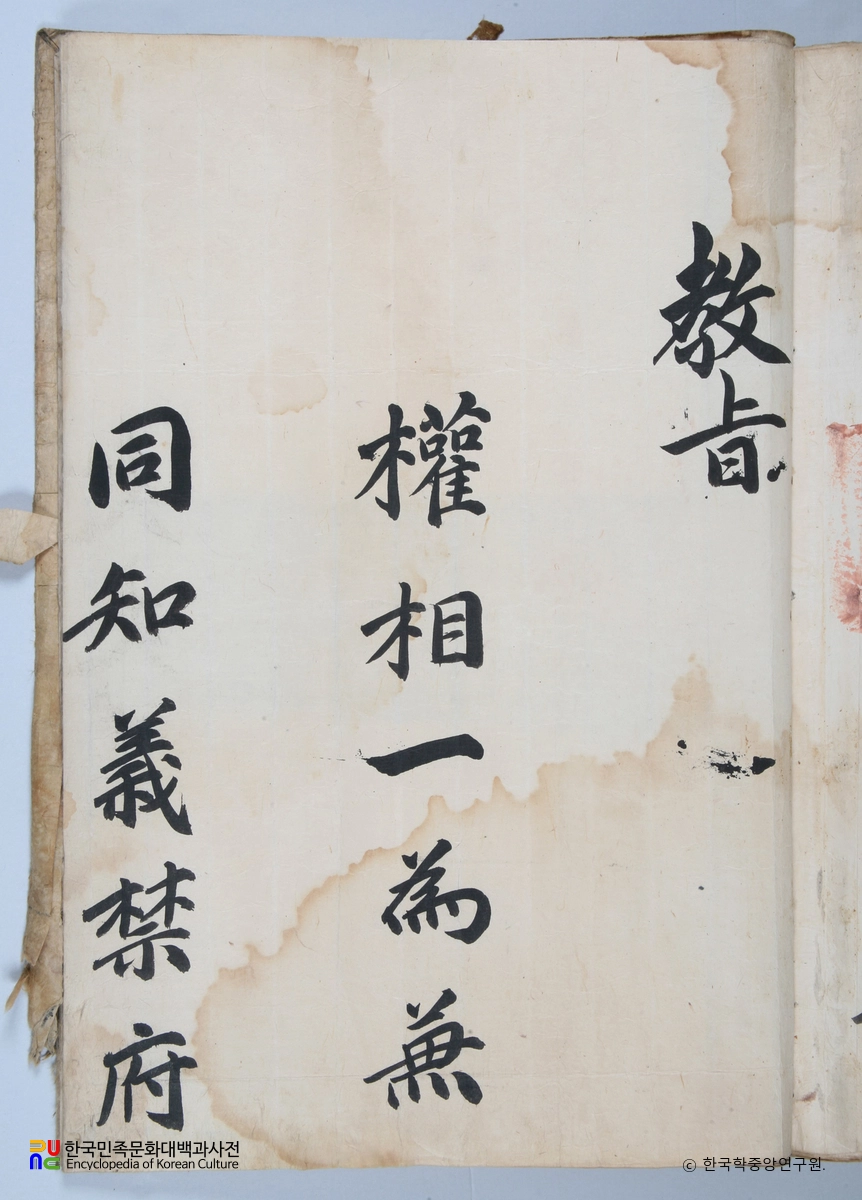 教旨
權相一為兼
同知義禁府
한국민족문화대백과사전
Encyclopedia of Korean Culture
© 한국학중앙연구원.